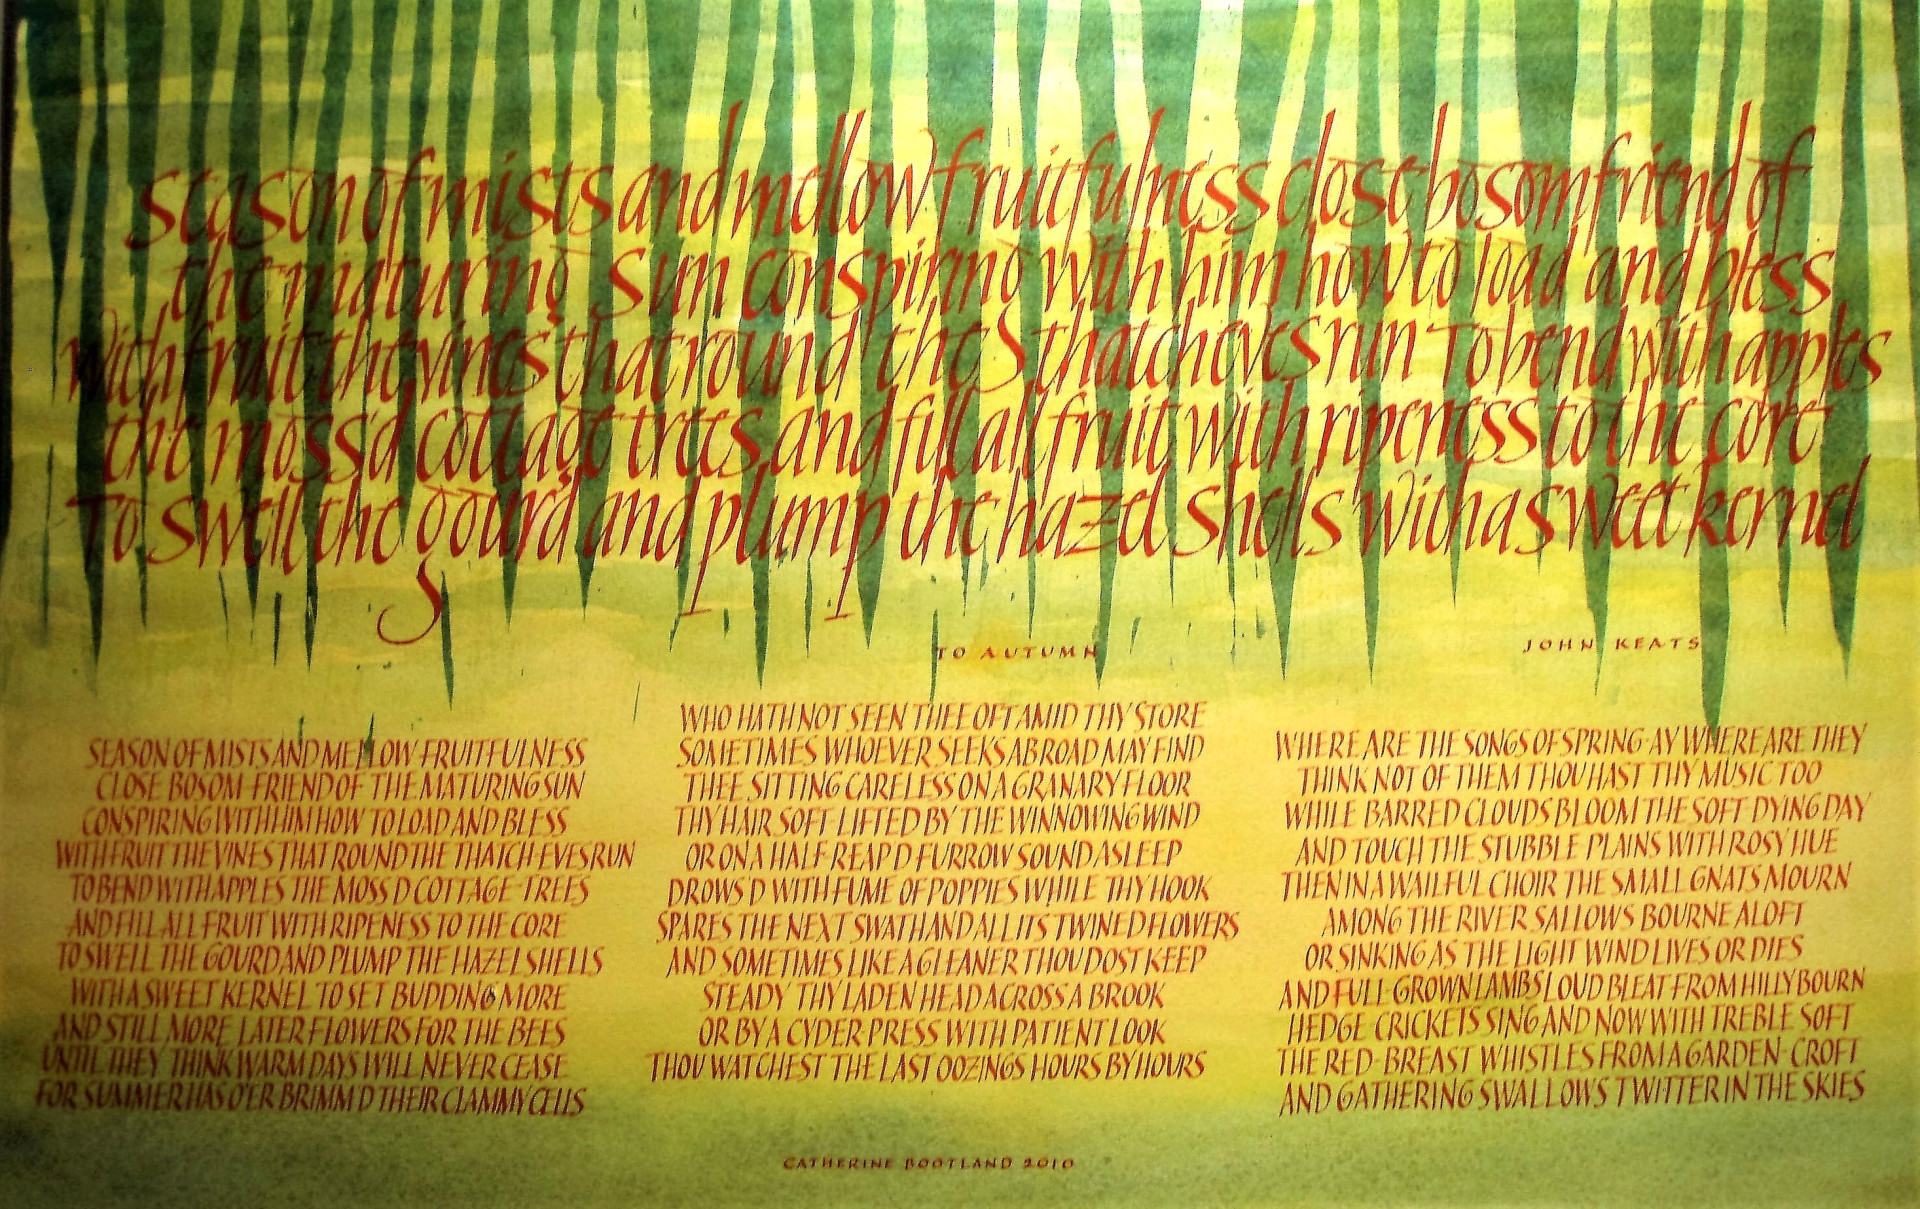 season of mists and mellow fruitfulness close bosom friend of
the maturing sun conspiring with him how to load and bless
with fruit the vines that round the thatch eves run To bend with apples
the moss'd cottage trees and fill all fruit with ripeness to the core
To swell the gourd and plump the hazel shells with a sweet kernel
TO AUTUMN JOHN KEATS
SEASON OF MISTS AND MELLOW FRUITFULNESS
CLOSE BOSOM-FRIEND OF THE MATURING SUN
CONSPIRING WITH HIM HOW TO LOAD AND BLESS
WITH FRUIT THE VINES THAT ROUND THE THATCH-EVES RUN
TO BEND WITH APPLES THE MOSS'D COTTAGE-TREES
AND FILL ALL FRUIT WITH RIPENESS TO THE CORE
TO SWELL THE GOURD AND PLUMP THE HAZEL SHELLS
WITH A SWEET KERNEL TO SET BUDDING MORE
AND STILL MORE LATER FLOWERS FOR THE BEES
UNTIL THEY THINK WARM DAYS WILL NEVER CEASE
FOR SUMMER HAS O'ER BRIMM'D THEIR CLAMMY CELLS
WHO HATH NOT SEEN THEE OFT AMID THY STORE
SOMETIMES WHOEVER SEEKS ABROAD MAY FIND
THEE SITTING CARELESS ON A GRANARY FLOOR
THY HAIR SOFT LIFTED BY THE WINNOWING WIND
OR ON A HALF-REAP'D FURROW SOUND ASLEEP
DROWS'D WITH FUME OF POPPIES WHILE THY HOOK
SPARES THE NEXT SWATH AND ALL ITS TWINED FLOWERS
AND SOMETIMES LIKE A GLEANER THOU DOST KEEP
STEADY THY LADEN HEAD ACROSS A BROOK
OR BY A CYDER-PRESS WITH PATIENT LOOK
THOU WATCHEST THE LAST OOZINGS HOURS BY HOURS
WHERE ARE THE SONGS OF SPRING-AY WHERE ARE THEY
THINK NOT OF THEM THOU HAST THY MUSIC TOO
WHILE BARRED CLOUDS BLOOM THE SOFT-DYING DAY
AND TOUCH THE STUBBLE PLAINS WITH ROSY HUE
THEN IN A WAILFUL CHOIR THE SMALL GNATS MOURN
AMONG THE RIVER SALLOWS BOURNE ALOFT
OR SINKING AS THE LIGHT WIND LIVES OR DIES
AND FULL-GROWN LAMBS LOUD BLEAT FROM HILLY BOURN
HEDGE CRICKETS SING AND NOW WITH TREBLE SOFT
THE RED-BREAST WHISTLES FROM A GARDEN-CROFT
AND GATHERING SWALLOWS TWITTER IN THE SKIES
CATHERINE BOOTLAND 2010